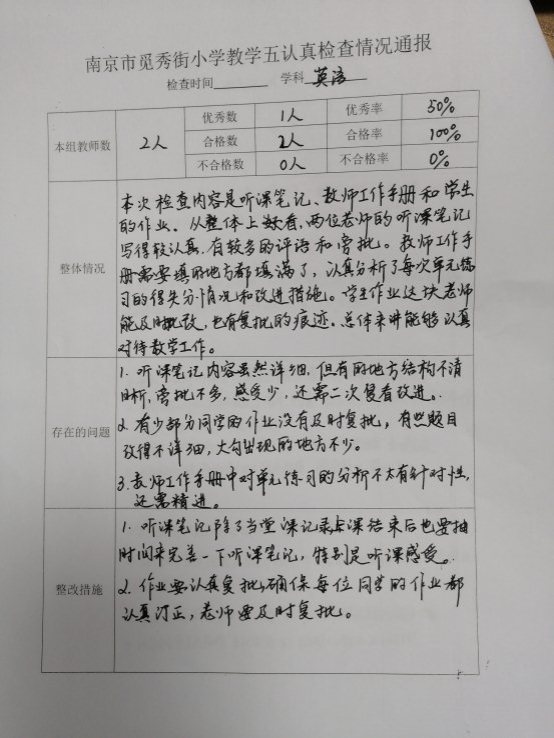 南京市觅秀街小学教学五认真检查情况通报
检查时间 学科 英语
本组教师数 2人 优秀数 1人 优秀率 50%
合格数 2人 合格率 100%
不合格数 0人 不合格率 0%
整体情况
本次检查内容是听课笔记、教师工作手册和学生
的作业。从整体上来看,两位老师的听课笔记
写得较认真,有较多的评语和旁批。教师工作手
册需要填的地方都填满了,认真分析了每次单元练
习的得失分情况和改进措施。学生作业这块老师
能及时批改,也有复批的痕迹。总体来讲能够认真
对待教学工作。
存在的问题
1. 听课笔记内容虽然详细,但有的地方结构不清
晰,旁批不多,感受少,还需二次复看改进。
2. 有少部分同学的作业没有及时复批,有些题目
改得不详细,大勾出现的地方不少。
3. 教师工作手册中对单元练习的分析不太有针对性,
还需精进。
整改措施
1. 听课笔记除了当堂课记录上课结束后也要抽
时间来完善一下听课笔记,特别是听课感受。
2. 作业要认真复批,确保每位同学的作业都
认真订正,老师要及时复批。